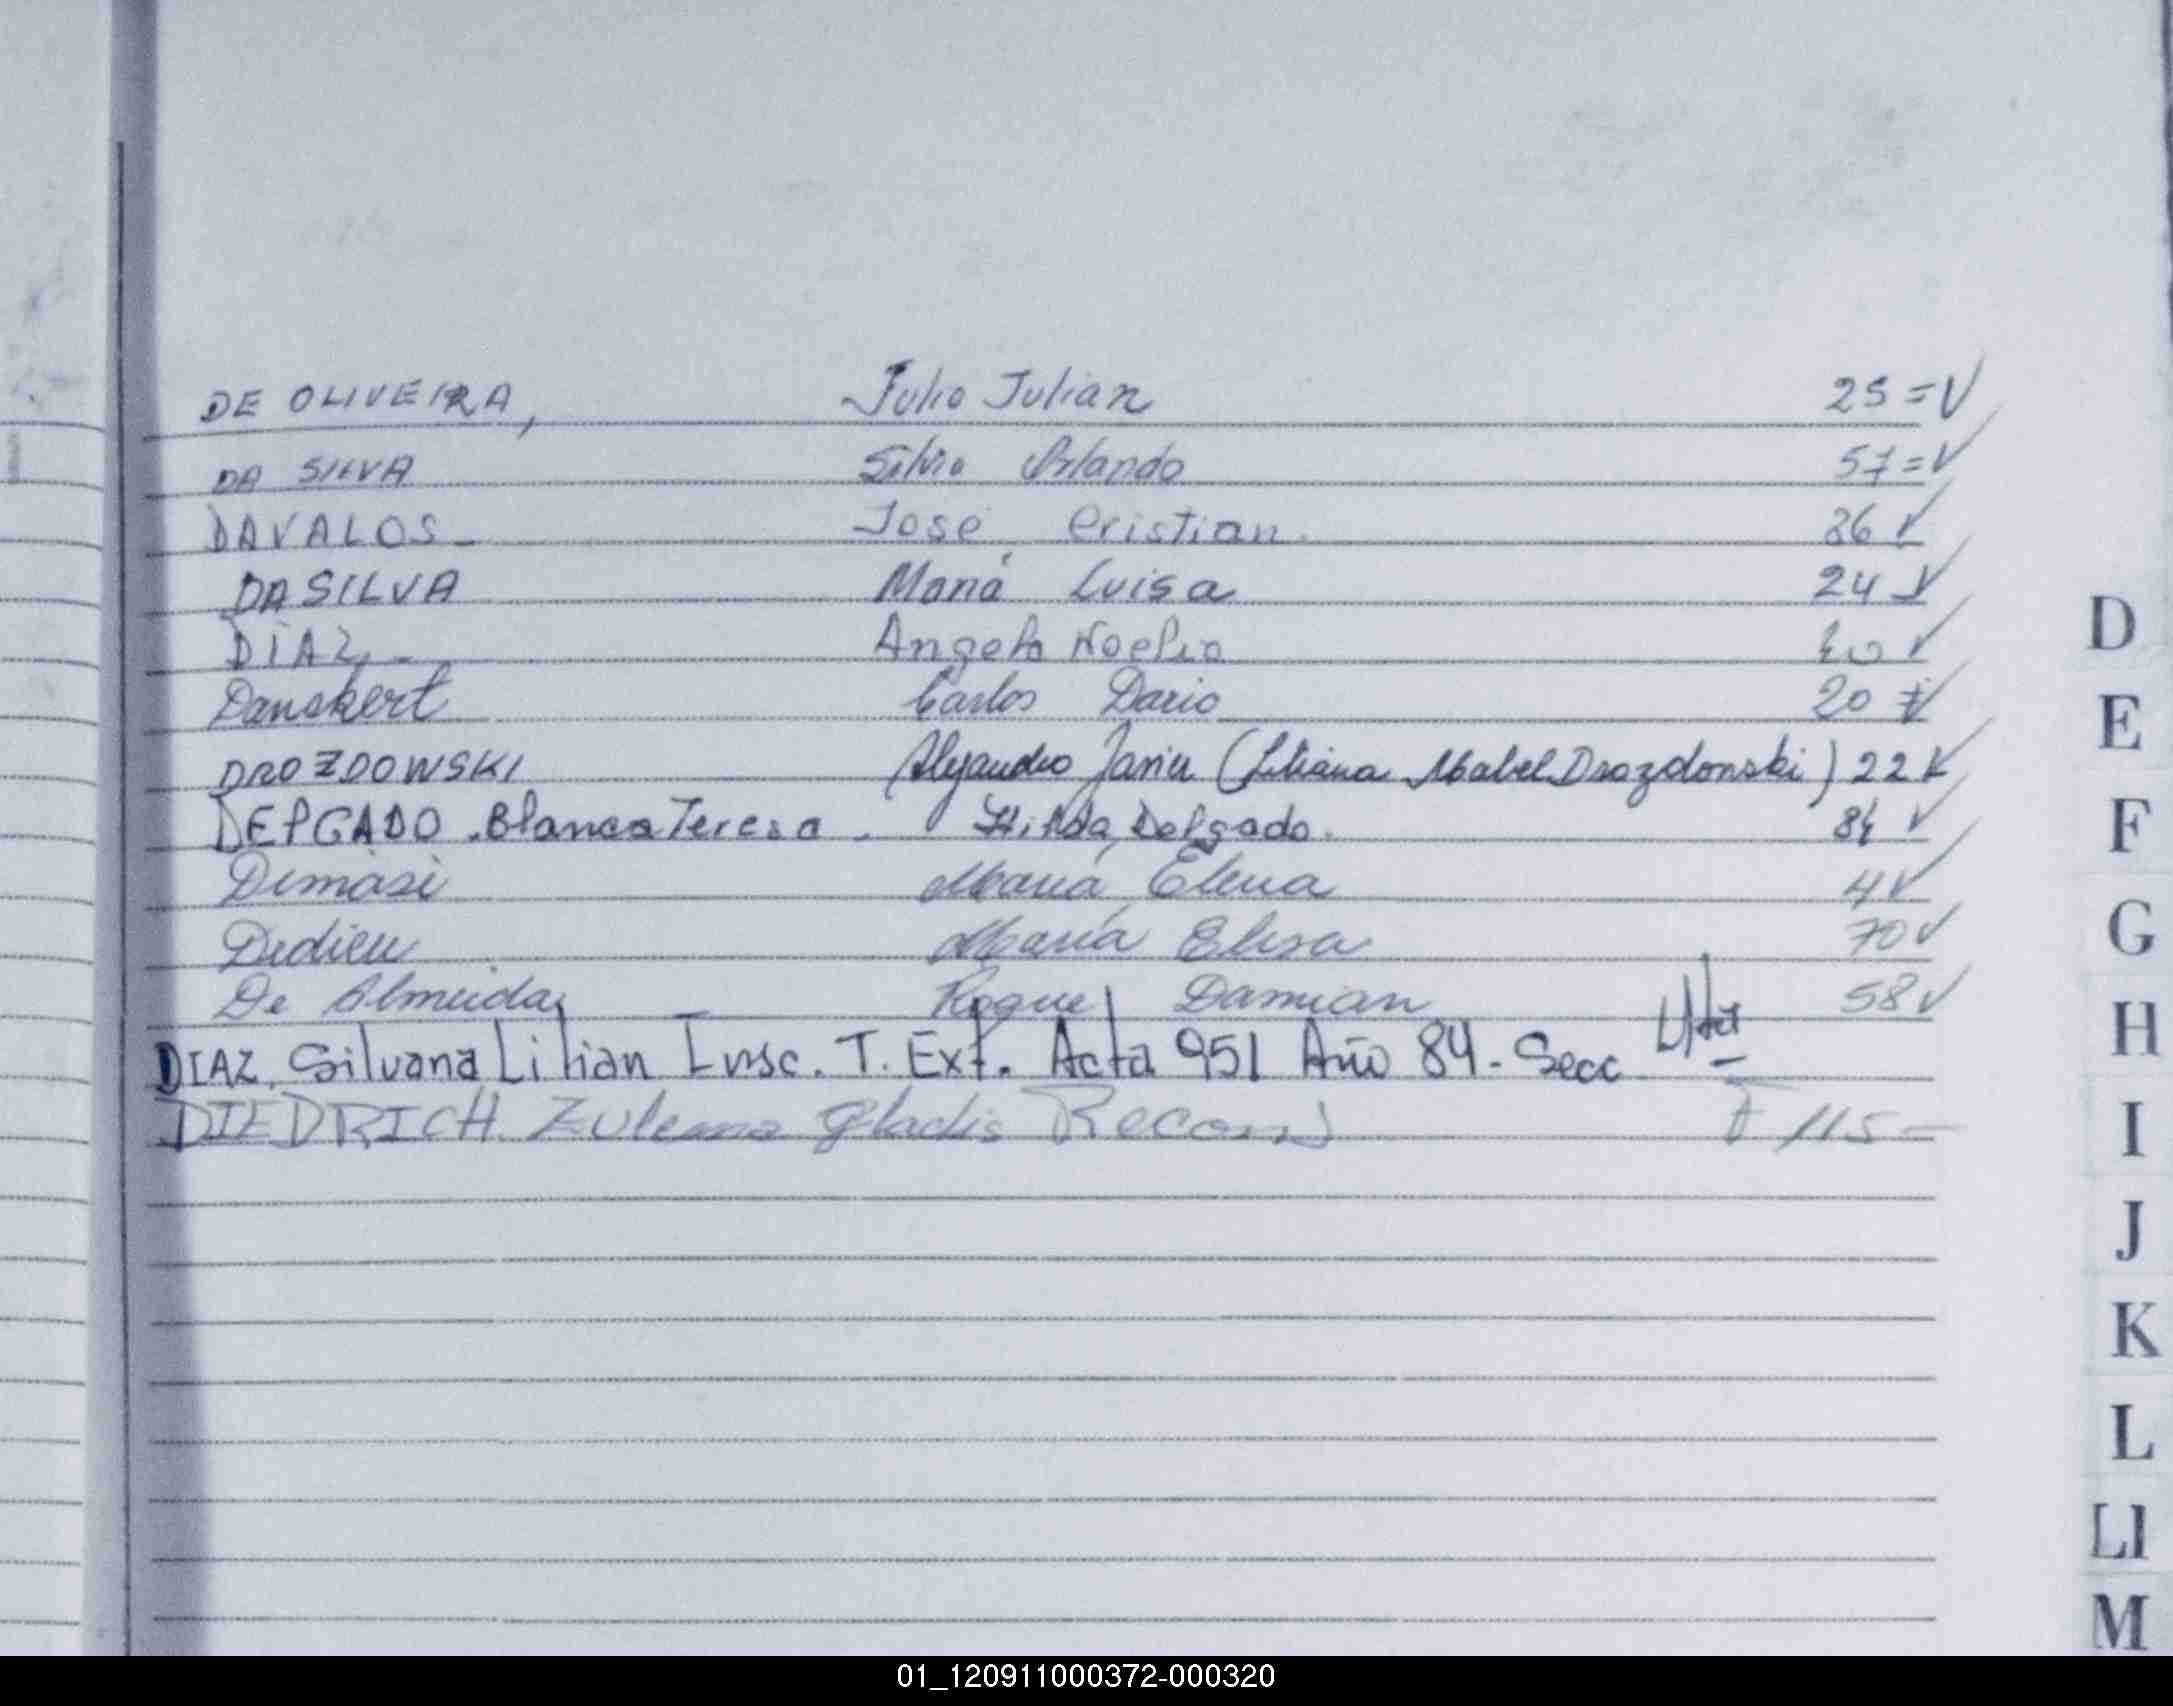 DE OLIVEIRA, Julio Julian 25 = V
DA SILVA Silvio Orlando 57 = V
DAVALOS - José Cristian. 86 V
DA SILVA María Luisa 24 V
DIAZ, - Angela Noelia 40 V
Danskert Carlos Dario 20 V
DROZDOWSKI Alejandro Javier (Liliana Mabel Drozdowski) 22 V
DELGADO . Blanca Teresa . Hilda Delgado. 84 V
Dimasi María Elena 4 V
Dedieu María Elisa 70 V
De Almeida, Roque Damian 58 V
DIAZ, Silvana Lilian Insc. T. Ext. Acta 951 Año 84 - Secc
DIEDRICH Zulema Gladis F 115 -
D
E
F
G
H
I
J
K
L
Ll
M
01_120911000372-000320